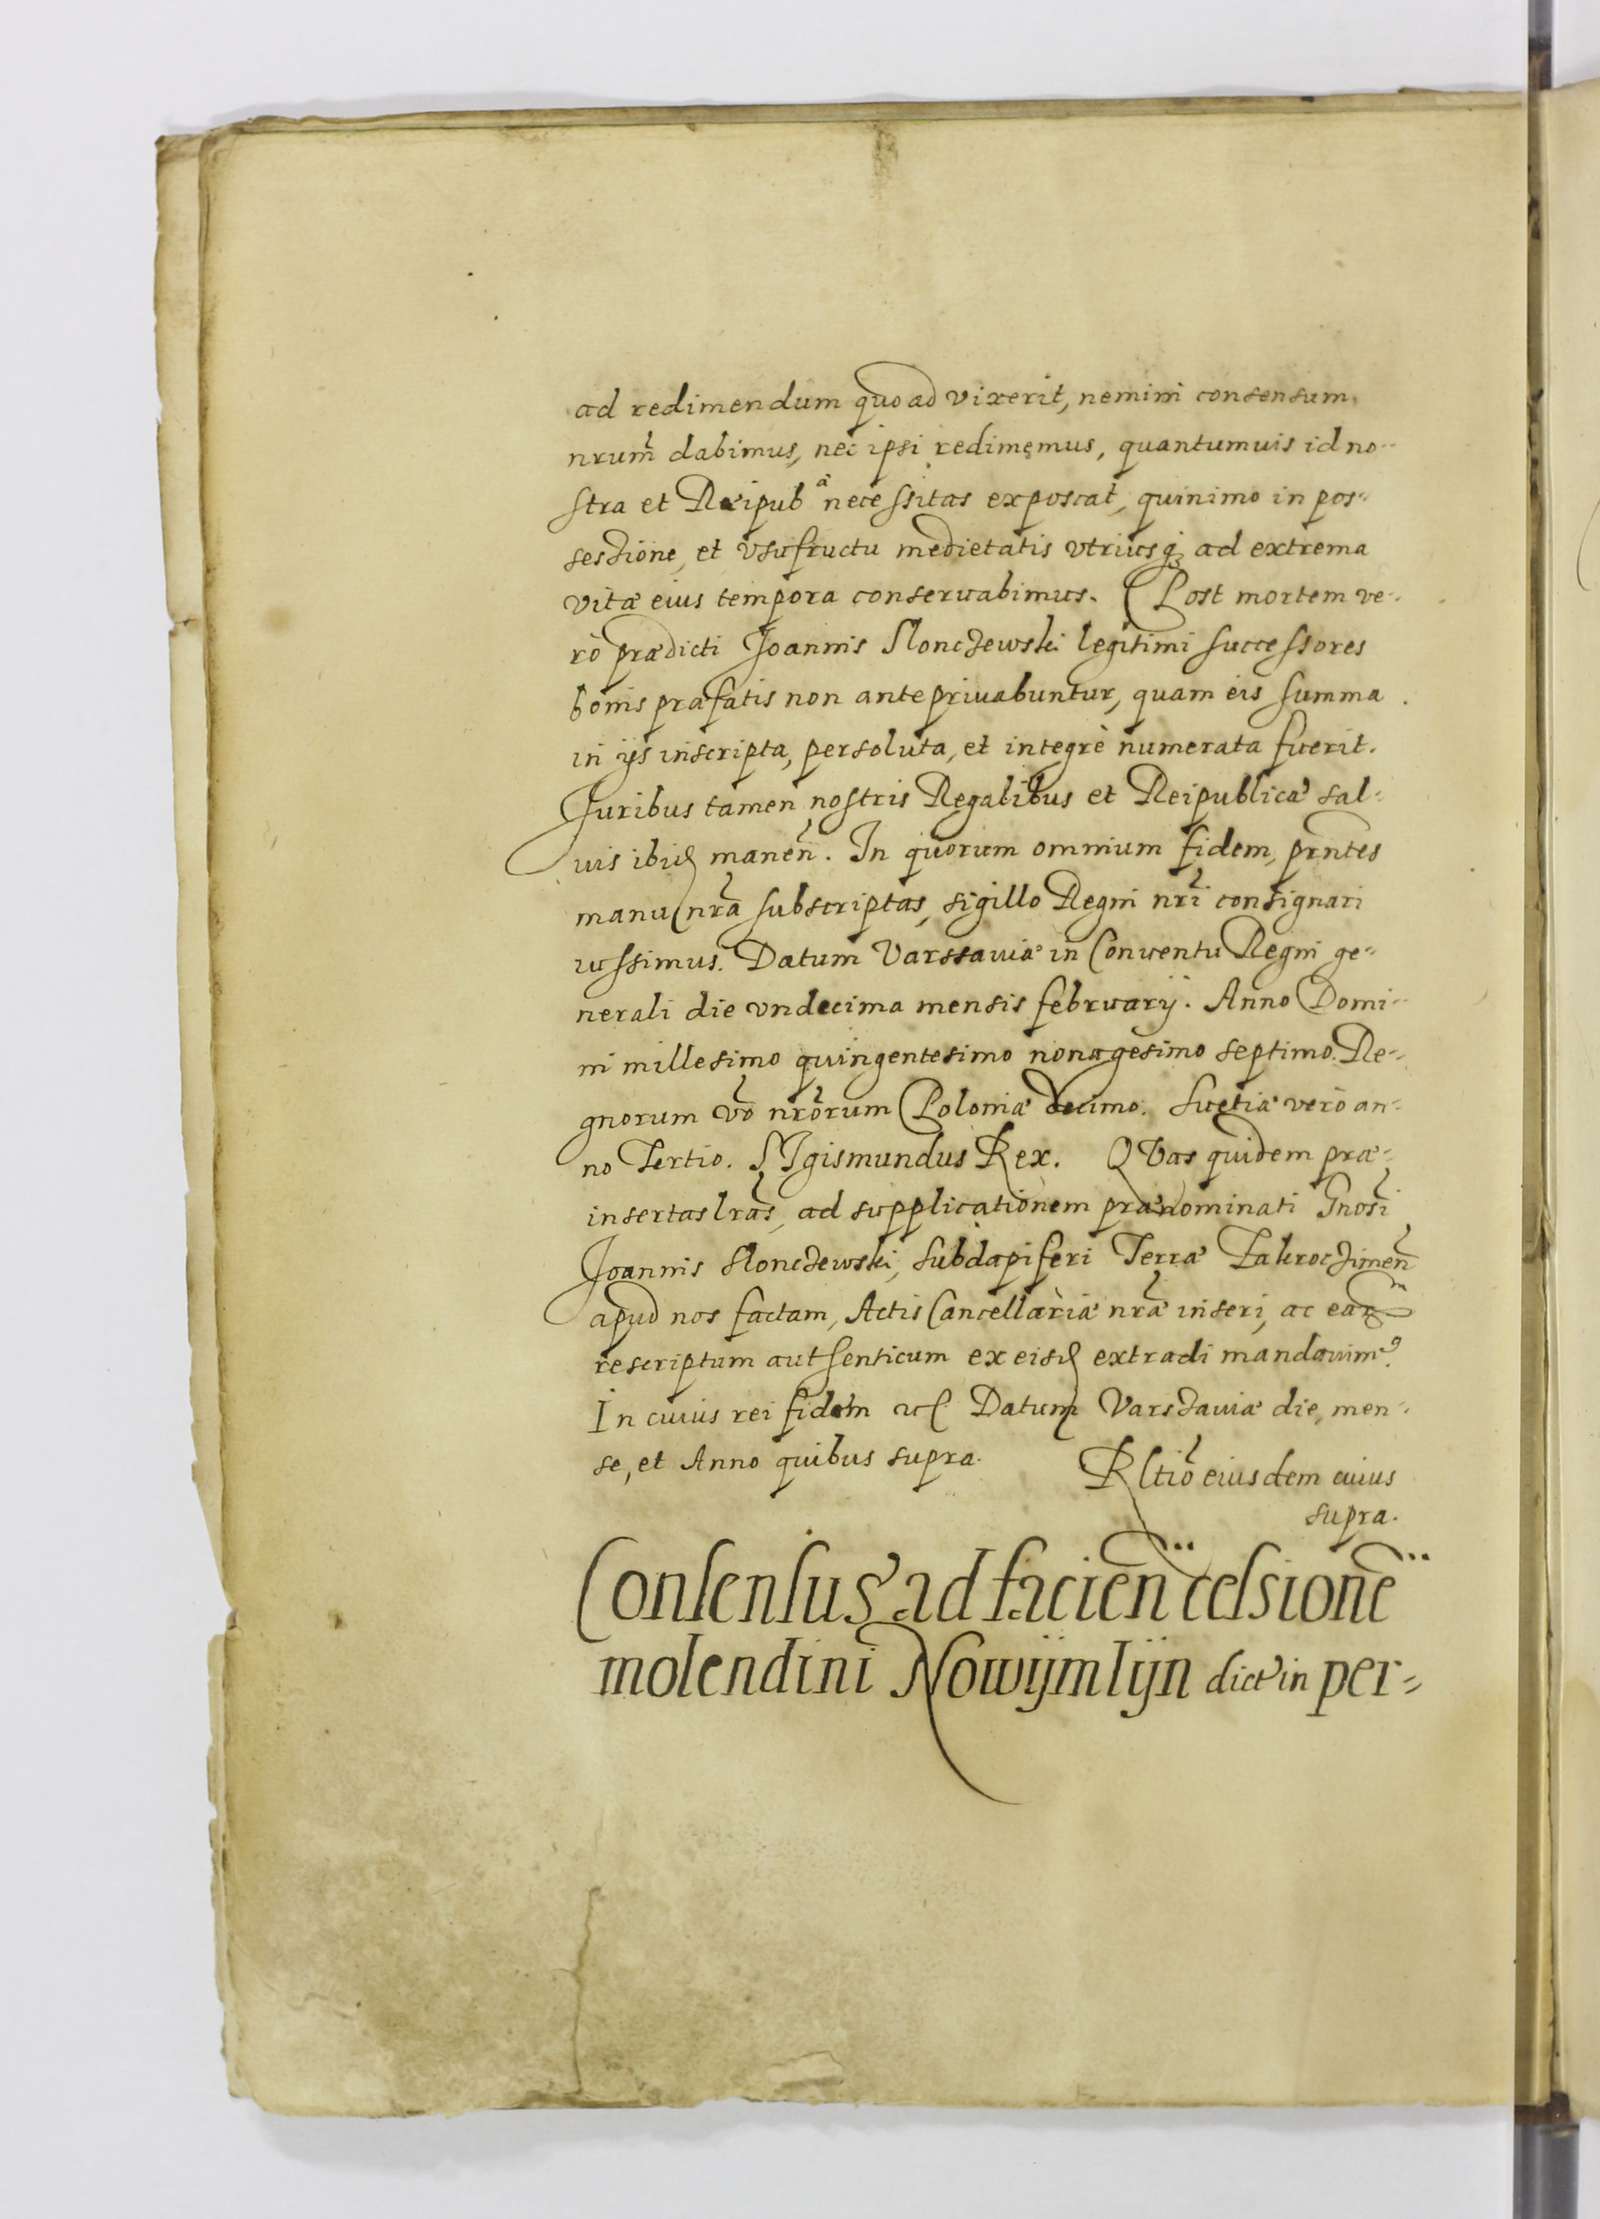 ad redimendum quoad vixerit, nemini consensum
nrum̃ dabimus, nec ipsi redimemus, quantumuis id no-
stra et Reipub^æ^ necessitas exposcat, quinimo in pos-
sessione, et vsufructu medietatis vtriusq; ad extrema
vitæ eius tempora conseruabimus. Post mortem ve-
rò prædicti Joannis Slonczewski legitimi successores
bonis præfatis non ante priuabuntur, quam eis summa
in ijs inscripta, persoluta, et integrè numerata fuerit.
Juribus tamen nostris Regalibus et Reipublicæ sal-
uis ibid manen̄. In quorum omnium fidem, prn̄tes
manu nrā subscriptas, sigillo Regni nrī consignari
iussimus. Datum Varssauiæ in Conuentu Regni ge-
nerali die vndecima mensis februarij. Anno Domi-
ni millesimo quingentesimo nonagesimo septimo. Re-
gnorum vō nrōrum Poloniæ decimo. Suetiæ verò an-
no Tertio. SIgismundus Rex. QVas quidem præ-
insertas lrās, ad supplicationem prænominati Gnosī
Joannis Slonczewski, subdapiferi Terræ Zakroczimen̄
apud nos factam, Actis Cancellariæ nrǣ inseri, ac ear^m^
rescriptum authenticum ex eisd extradi mandauim⁹.
In cuius rei fidem &c Datum Varszauiæ die, men-
se, et Anno quibus supra.
Rltiō eiusdem cuius
supra.
Consensus ad facien̄ cessionē
molendini Nowÿmlÿn dict in per-